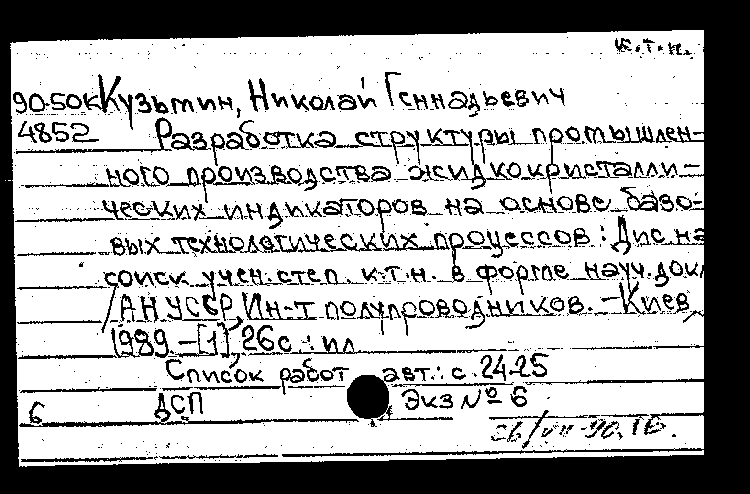 к.т.н.
90-50к Кузьмин, Николай Геннадьевич
4852 Разработка структуры промышлен-
ного производства жидкокристалли-
ческих индикаторов на основе базо-
вых технологических процессов: Дис. на
соиск. учен. степ. к.т.н. в форме науч. докл
/АН УССР, Ин-т полупроводников. - Киев,
1989 - [1], 26 с.: ил
Список работ авт.: с. 24-25
6 ДСП Экз № 6